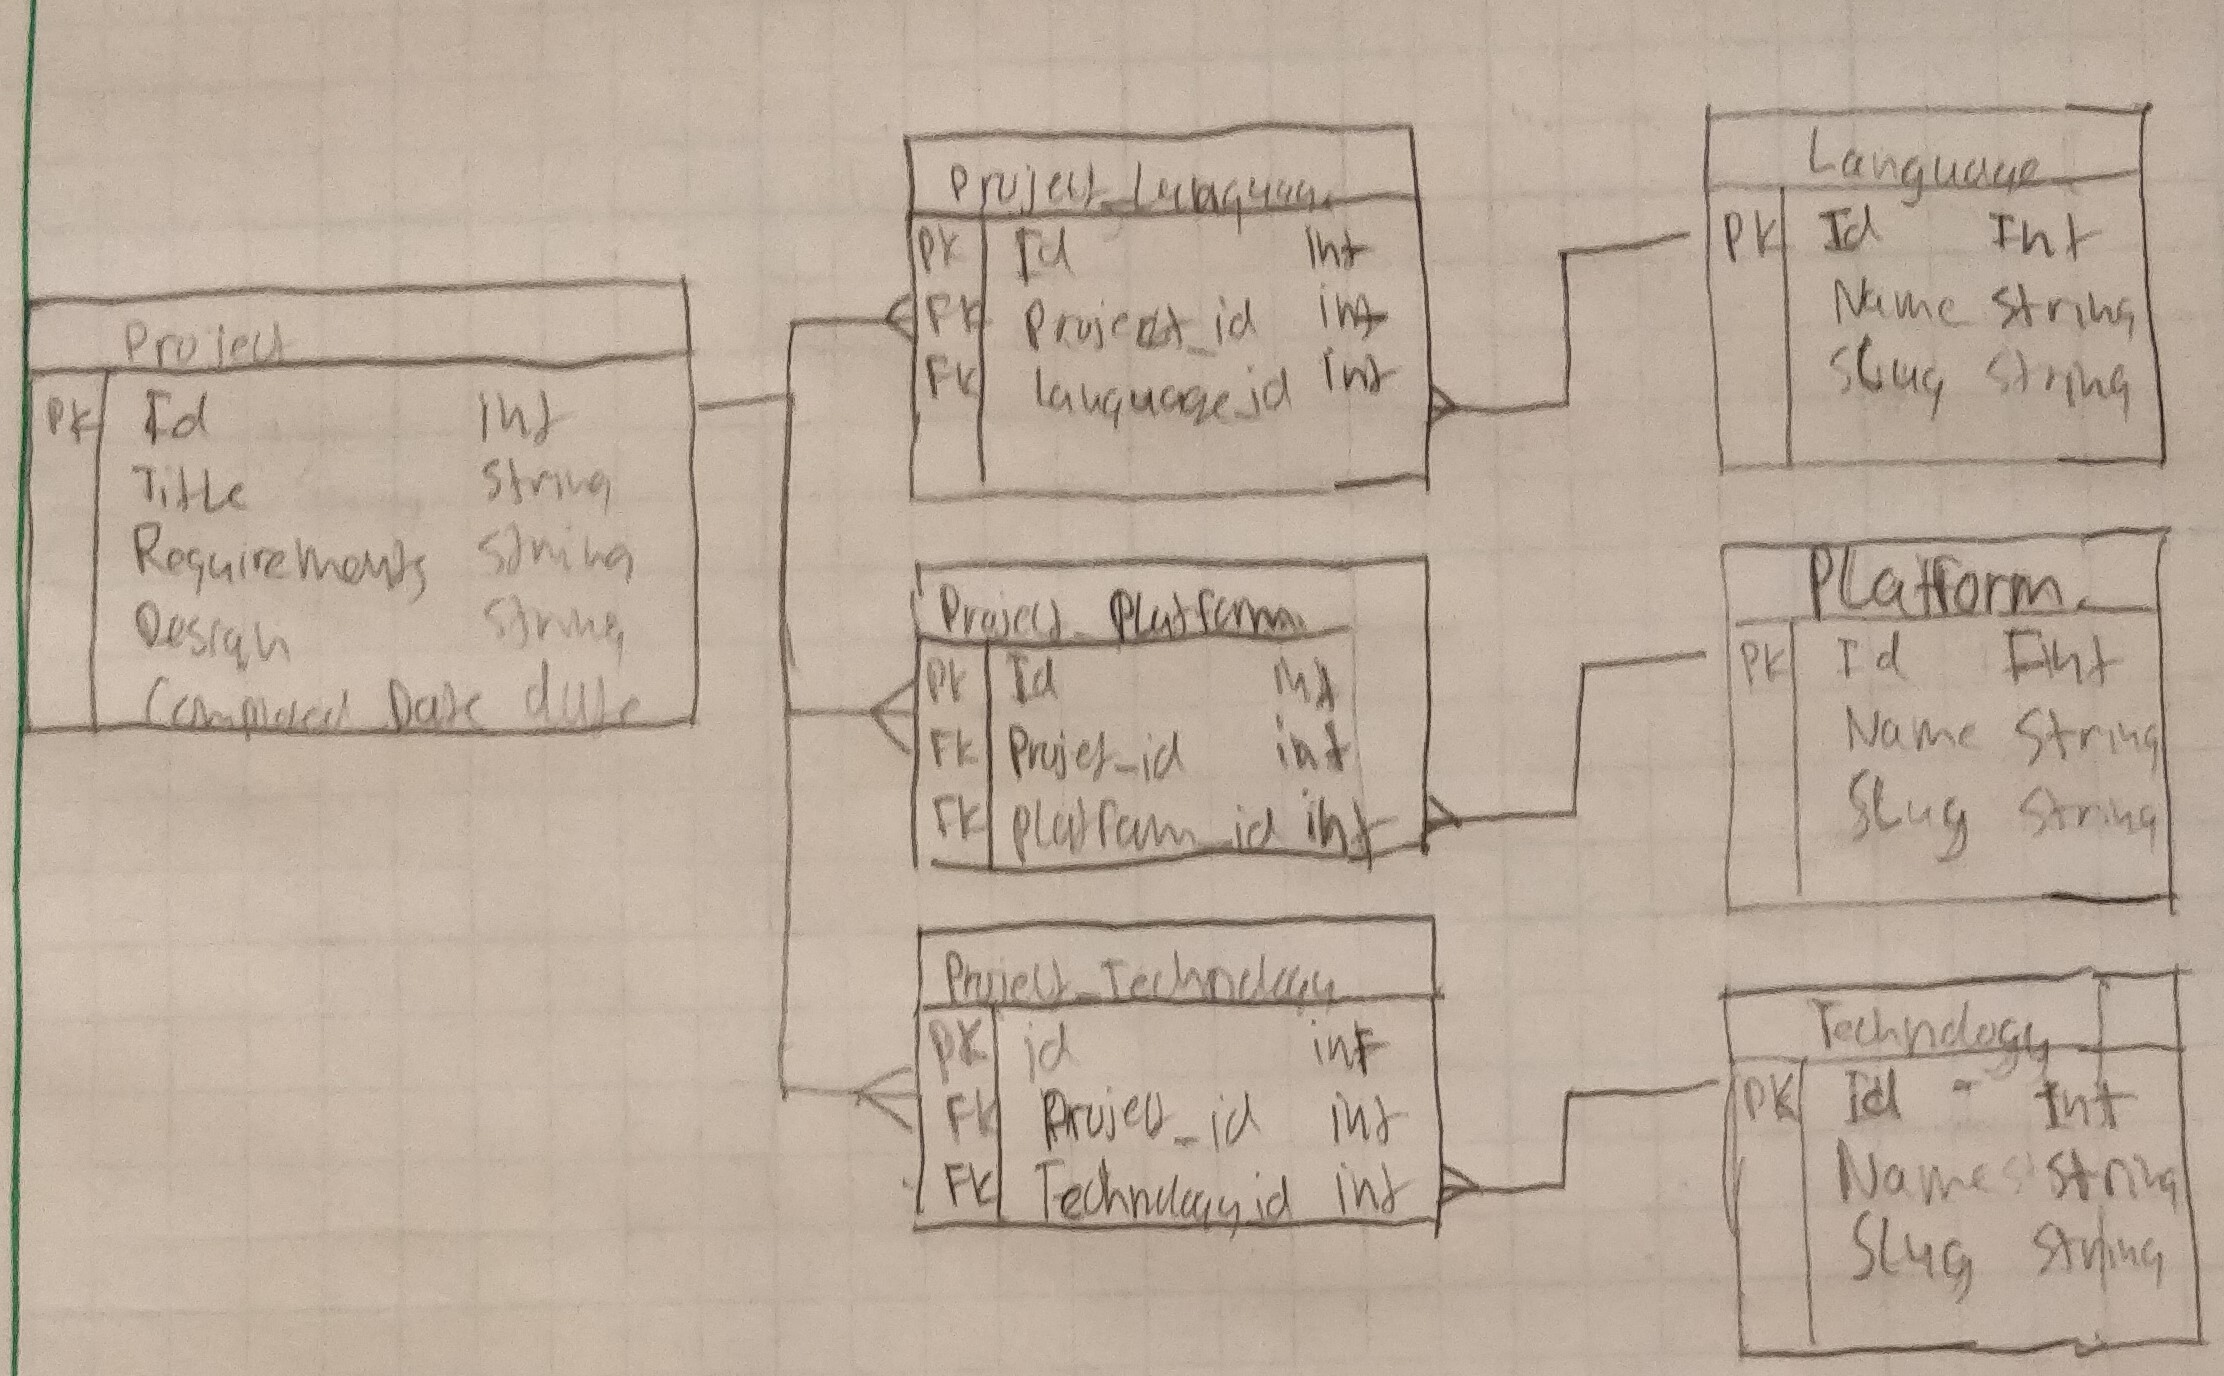 Project
PK Id int
Title string
Requirements string
Design string
Date date
Project_Language
PK Id int
FK Project_id int
FK language_id int
Project_Platform
PK Id int
FK Projet_id int
FK platform_id int
Project_Technology
PK id int
FK Project_id int
FK Technology_id int
Language
PK Id Int
Name string
Slug string
Platform
PK Id Int
Name String
Slug String
Technology
PK Id - Int
Name String
Slug String